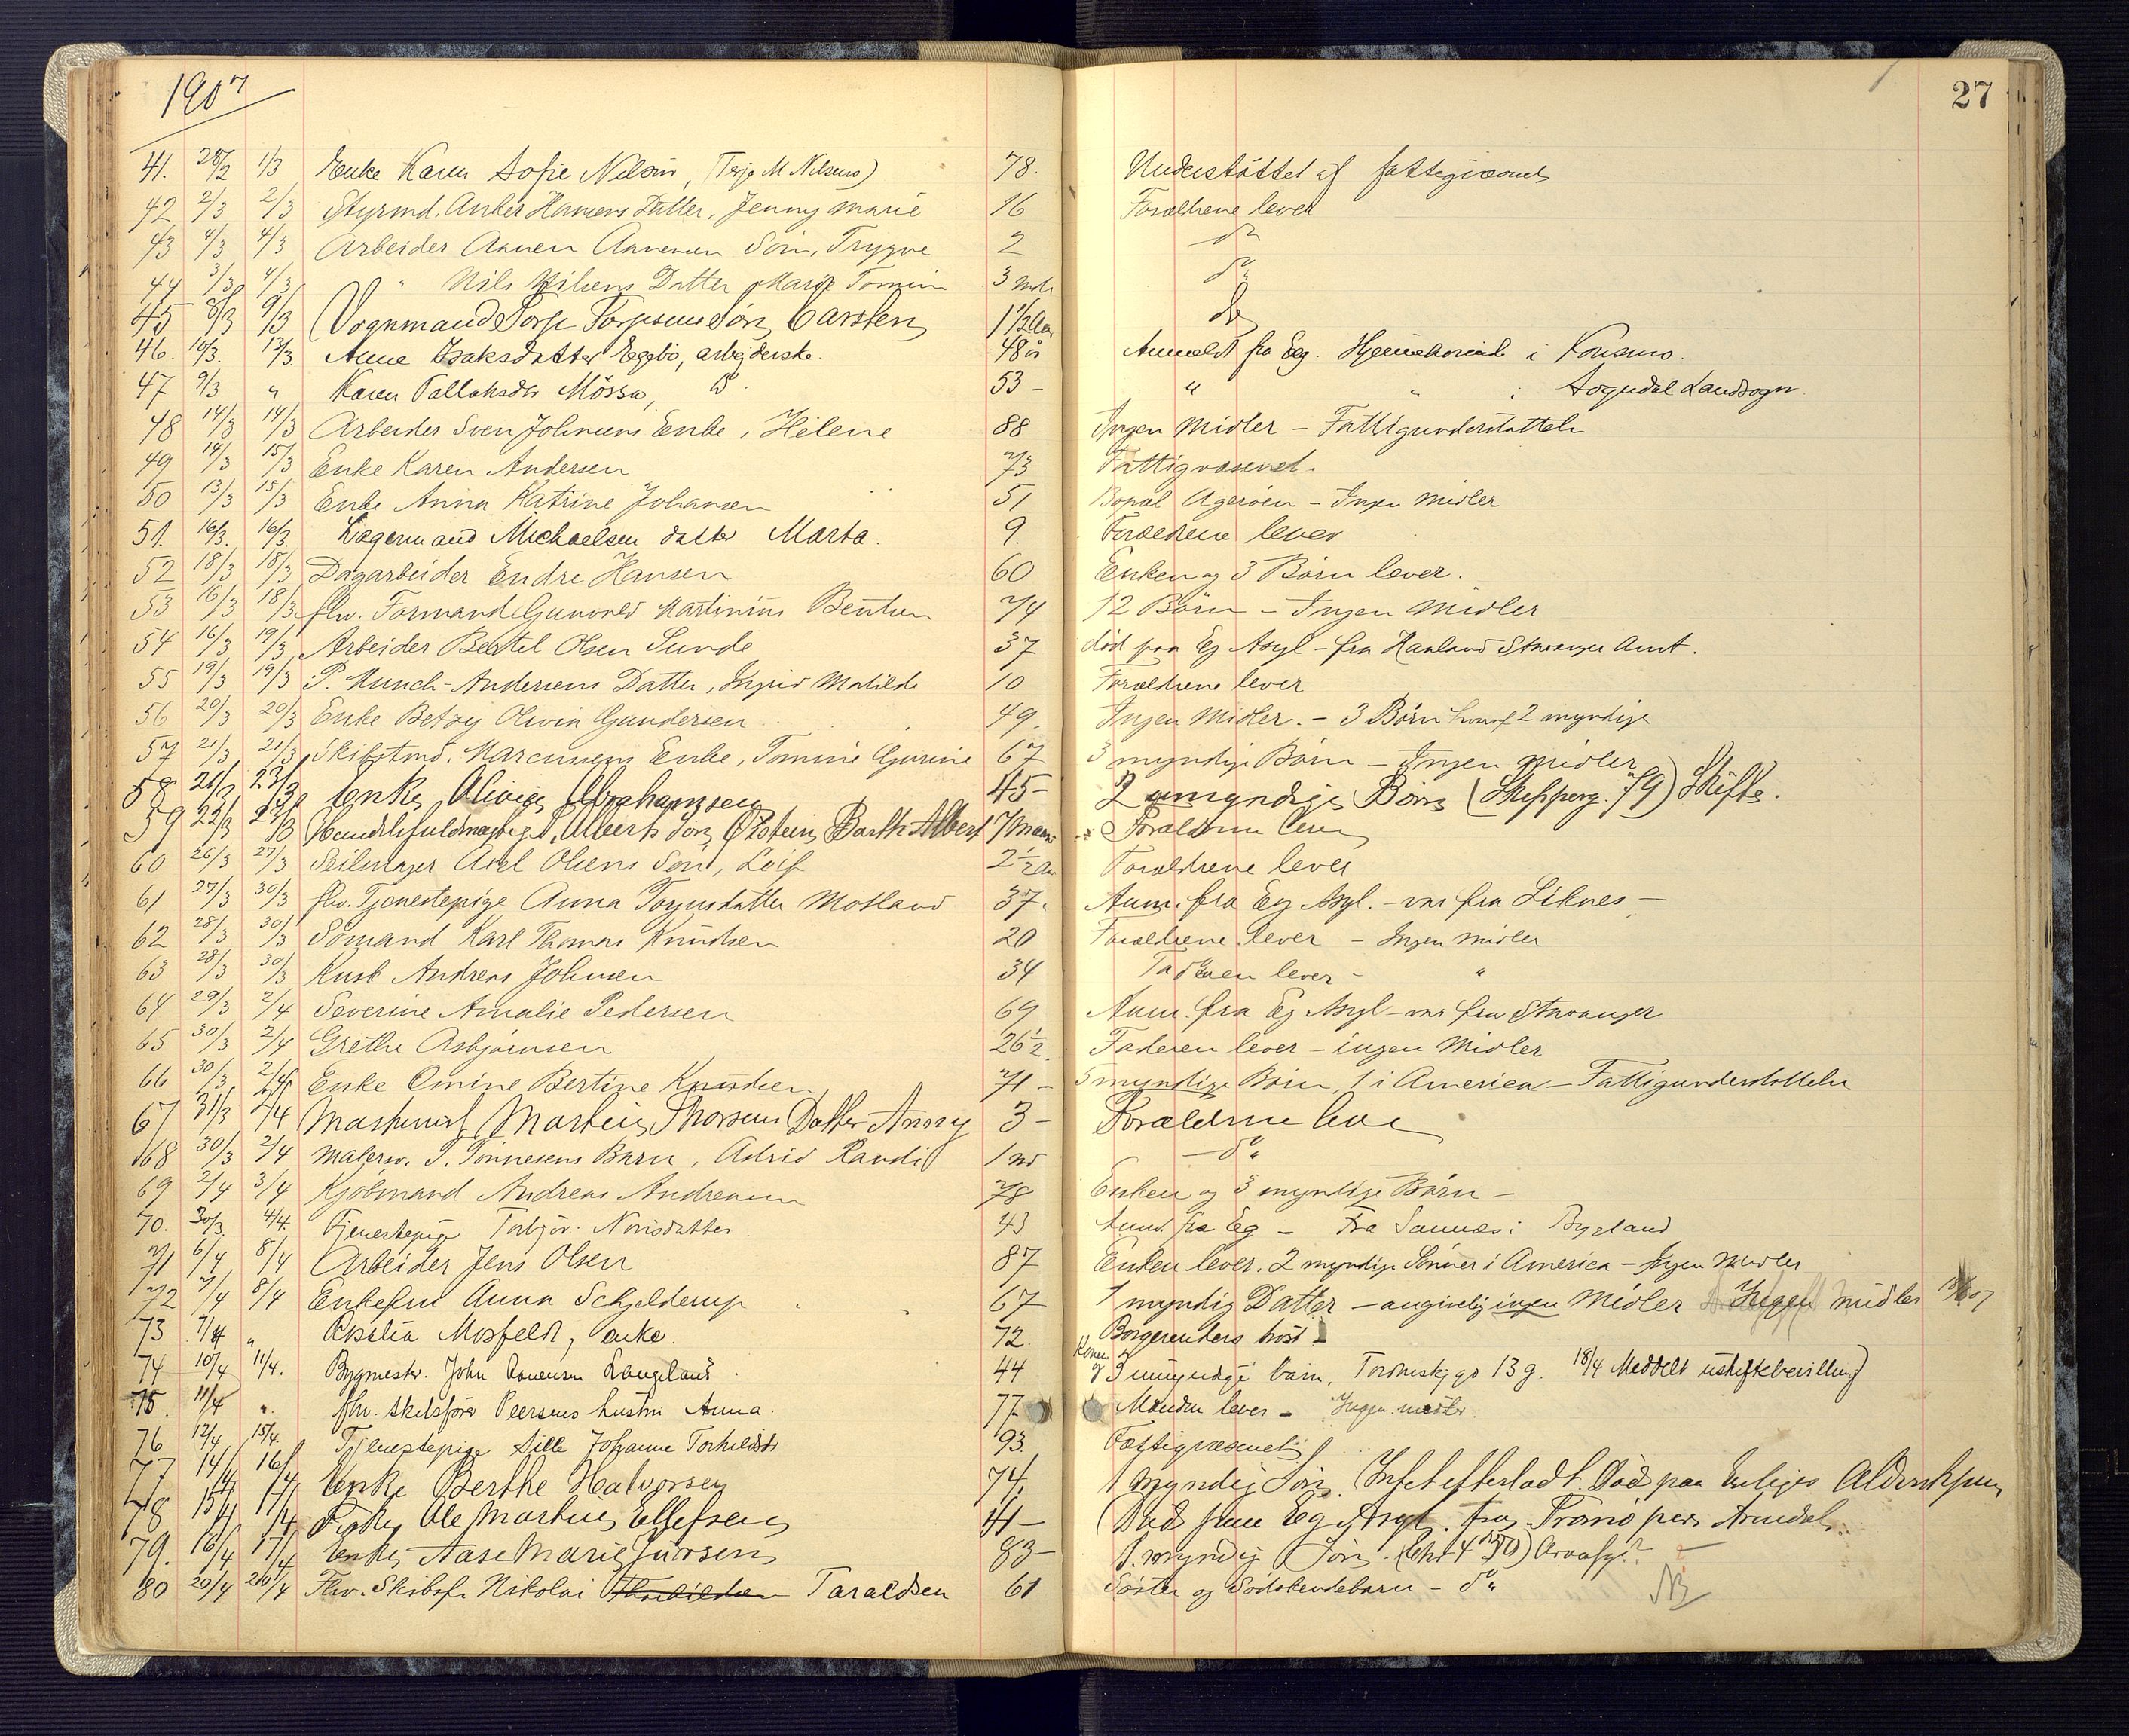 1907
27
41. 28/2 1/3 Enke Karen Sofie Nilsen, (Terje M Nilsens) 78. Understöttet af fattigvæsenet
42 2/3 2/3 Styrmd. Anker Hansens Datter, Jenny Marie 16 Forældrene lever
43 4/3 4/3 Arbeider Aanen Aanensen Sön, Trygve 2 do
44 3/3 4/3 " Nils Nilsens Datter Marie Tomine 3 mdr do
45 8/3 9/3 Vognmand Torje Torjesens Sön, Carsten 1 1/2 Aar do
46. 10/3. 13/3. Anne Isaksdatter Eggebö, arbejderske. 48 år Anmeldt fra Eg. Hjemehörende i Konsmo.
47 9/3 " Karen Tallaksdr Mössa, do. 53 - " " i Sogndal Landsogn
48 14/3 14/3 Arbeider Sven Johnsens Enke, Helene 88 Ingen Midler - Fattigunderstöttelse
49 14/3 15/3 Enke Karen Andersen 73 Fattigvæsenet.
50 13/3 15/3 Enke Anna Katrine Johansen 51 Bopæl Ageröen - Ingen midler
51. 16/3. 16/3. Lagermand Michaelsen datter Marta. 9. Forældrene lever
52 18/3 18/3 Dagarbeider Endre Hansen 60 Enken og 3 Börn lever.
53 16/3 18/3 fhv. Formand Gunvald Martinius Bentsen 74 12 Börn - Ingen Midler
54 16/3 19/3 Arbeider Bertel Olsen Sunde 37 död paa Eg Asyl - fra Haaland Stavanger Amt.
55 19/3 19/3 P. Munch-Andersens Datter, Ingrid Matilde 10 Forældrene lever
56 20/3 20/3 Enke Betzy Olivia Gundersen 49. Ingen Midler. - 3 Börn hvoraf 2 myndige
57 21/3 21/3 Skibstmd. Marcussens Enke, Tomine Gurine 67 3 myndige Börn - Ingen midler
58 21/3 23/3 Enke Olivia Abrahamsen 45 - 2 umyndige Börn (Skipperg. 79) Skifte.
59 22/3 23/3 Handelsfuldmægtig Alberts Sön, Öistein Barth Albert 7 Maan Forældrene lever
60 26/3 27/3 Seilmager Axel Olsens Sön, Leif 2 1/2 Aar Forældrene lever
61 27/3 30/3 fhv. Tjenestepige Anna Torjusdatter Mosland 37. Anm. fra Eg Asyl. - var fra Liknes -
62 28/3 30/3 Sömand Karl Thomas Knudsen 20 Forældrene lever - Ingen midler
63 28/3 30/3 Kusk Andreas Johnsen 34 Faderen lever - "
64 29/3 2/4 Severine Amalie Pedersen 69 Anm. fra Eg Asyl - var fra Stavanger
65 30/3 2/4 Grethe Asbjörnsen 26 1/2. Faderen lever - ingen Midler
66 30/3 2/4 Enke Omine Bertine Knudsen 71 - 5 myndige Börn, 1 i America - Fattigunderstöttelse
67 31/3 2/4 Maskinist Martin Thorsens Datter Anny 3 - Forældrene leve
68 30/3 2/4 Malersv. T. Tönnesens Barn, Astrid Randi 1 md do
69 2/4 3/4 Kjöbmand Andreas Andreasen 78 Enken og 3 myndige Börn -
70. 30/3. 4/4. Tjenestepige Torbjör. Norisdatter. 43 Anm. fra Eg - Fra Sannæs i Bygland
71 6/4 8/4 Arbeider Jens Olsen 87 Enken lever. 2 myndige Sönner i America - Ingen Midler
72 7/4 8/4 Enkefru Anna Schjelderup 67 1 myndig Datter - angivelig ingen Midler Ingen midler
73 7/4 " Rosalia Mosfeldt, enke. 72. Borgerenkers hus -
74 10/4 11/4. Bygmester. John Aanensen Langeland. 44 Konen og 3 umyndige börn, Tordenskjgd 13 g. 18/4 Meddelt uskiftebevilling
75. 11/4 ". fhv. skibsförer Peersens hustru Anna. 77 Manden lever - Ingen midler.
76 12/4 15/4. Tjenestepige Sille Johanne Torkildsdr 93. Fattigvæsenet
77 14/4 16/4 Enke Berthe Halvorsen 74. 1 myndig Sön. Intet efterladt. Död paa Enliges Aldershjem
78 15/4 17/4 Ole Martin Ellefsen 41 - Död paa Eg Asyl. fra Tromö per Arendal.
79. 16/4 17/4 Enke Aase Marie Jürsen 83 - 1 myndig Sön.
80 20/4 20/4 Fhv. Skibsf. Nikolai Taraldsen 61 Söster og Södskendebarn - do NB